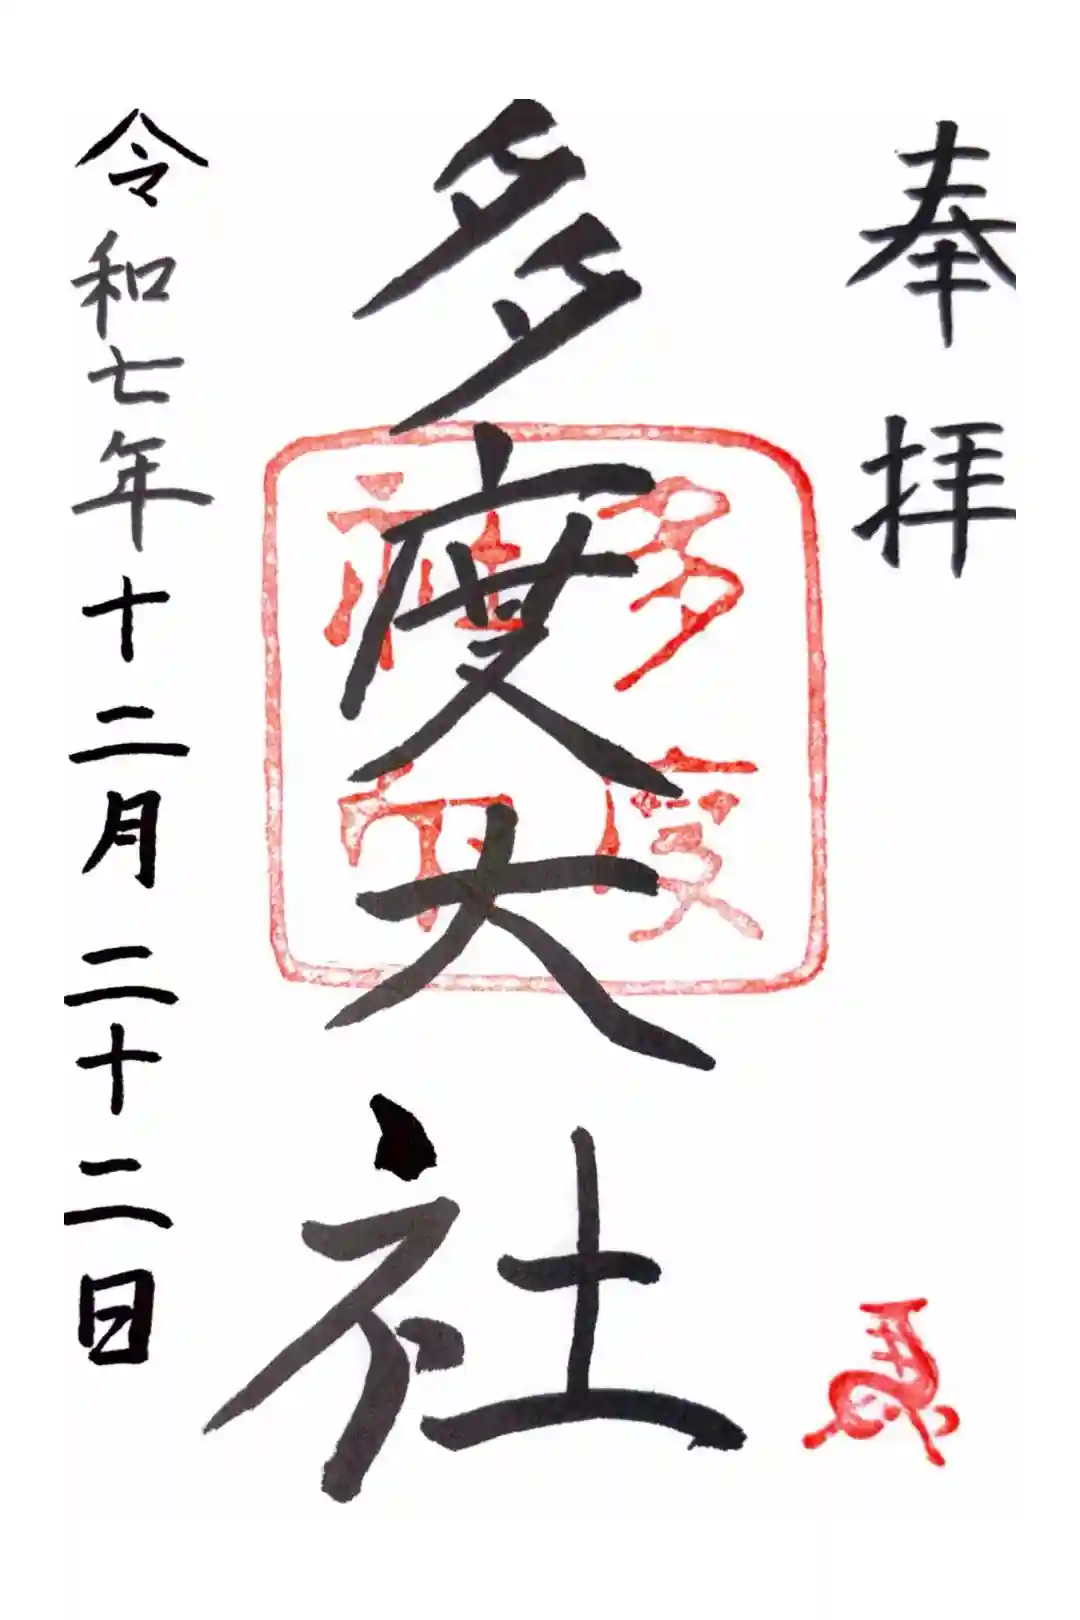 奉拝
多度大社
多度
社印
馬
令和七年十二月二十二日